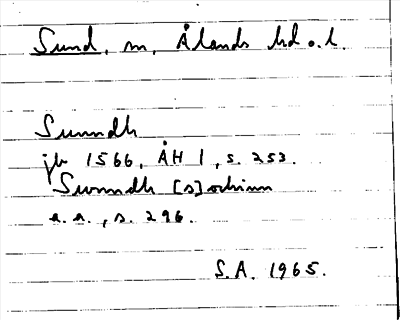 Sund, sn, Ålands hd o. l.
Sunndh
jb 1566, ÅH 1, s. 253.
Swnndh [s]ochinn
a.a., s. 296.
S.A. 1965.